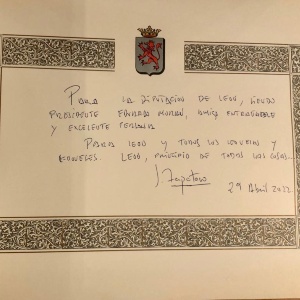 Para la Diputación de León, 
Presidente Eduardo Morán, amigo entrañable
y excelente persona
Para León y todos los leoneses y
leonesas León, principio de todas las cosas...
29 Abril 2022